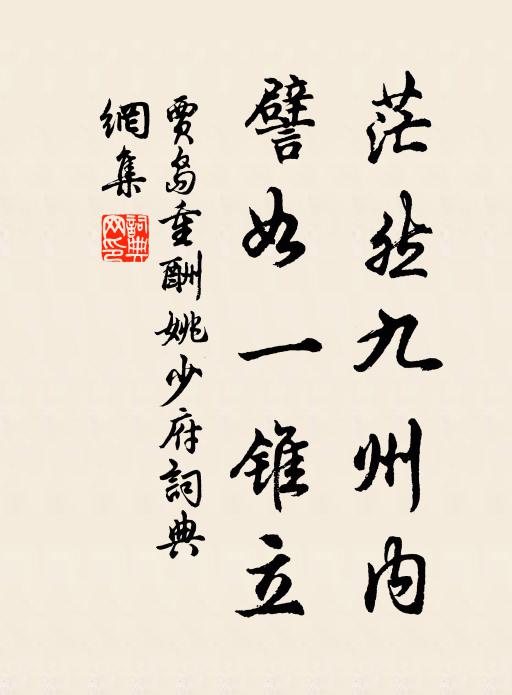 茫然九州內
譬如一錐立
賈島重酬姚少府詞典
網集
詞典網印